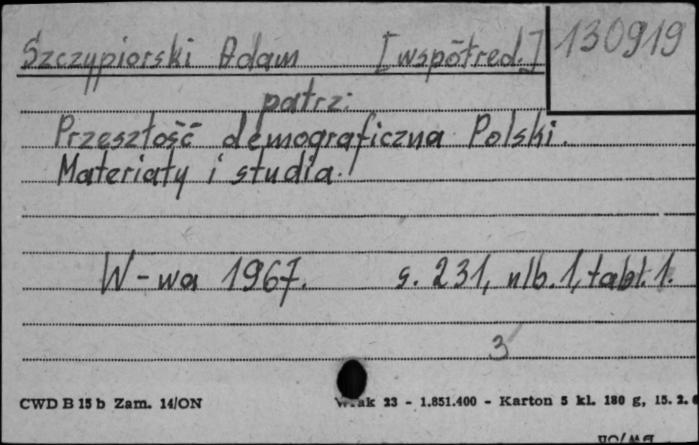 Szczypiorski Adam [współred.] 130919
patrz:
Przeszłość demograficzna Polski.
Materiały i studia.
W-wa 1967. s. 231, nlb. 1, tabl. 1.
3
CWD B 15 b Zam. 14/ON - 1.851.400 - Karton 5 kl. 180 g, 15. 2.